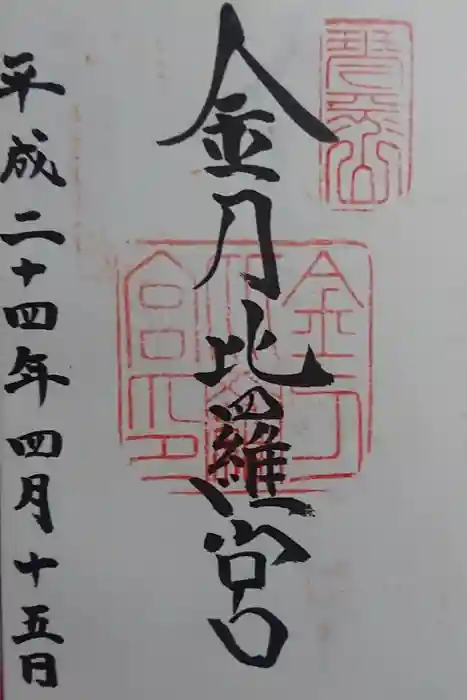 琴平山
金月比羅宮
金刀
比羅
宮印
平成二十四年四月十五日